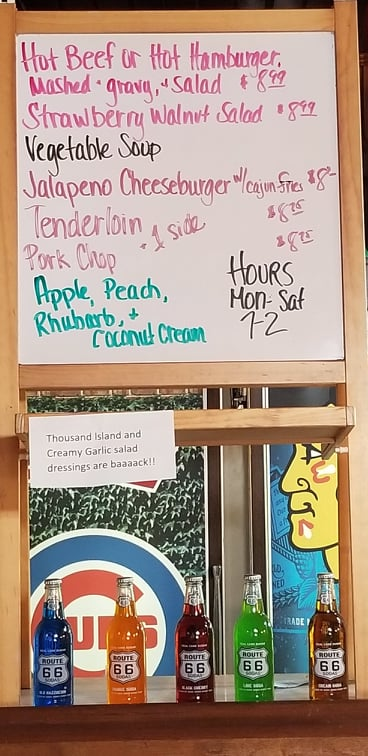 Hot Beef or Hot Hamburger,
Mashed + gravy, + Salad $8.99
Strawberry Walnut Salad $8.99
Vegetable Soup
Jalapeno Cheeseburger w/cajun fries $8-
Tenderloin $8.75
+ 1 side
Pork Chop $8.75
Apple, Peach,
Rhubarb, +
Coconut Cream
HOURS
Mon-Sat
7-2
Thousand Island and
Creamy Garlic salad
dressings are baaaack!!
UBS
ROUTE
66
SODAS
ROUTE
66
SODAS
ORANGE SODA
ROUTE
66
SODAS
BLACK CHERRY
ROUTE
66
SODAS
LIME SODA
ROUTE
66
SODAS
CREAM SODA